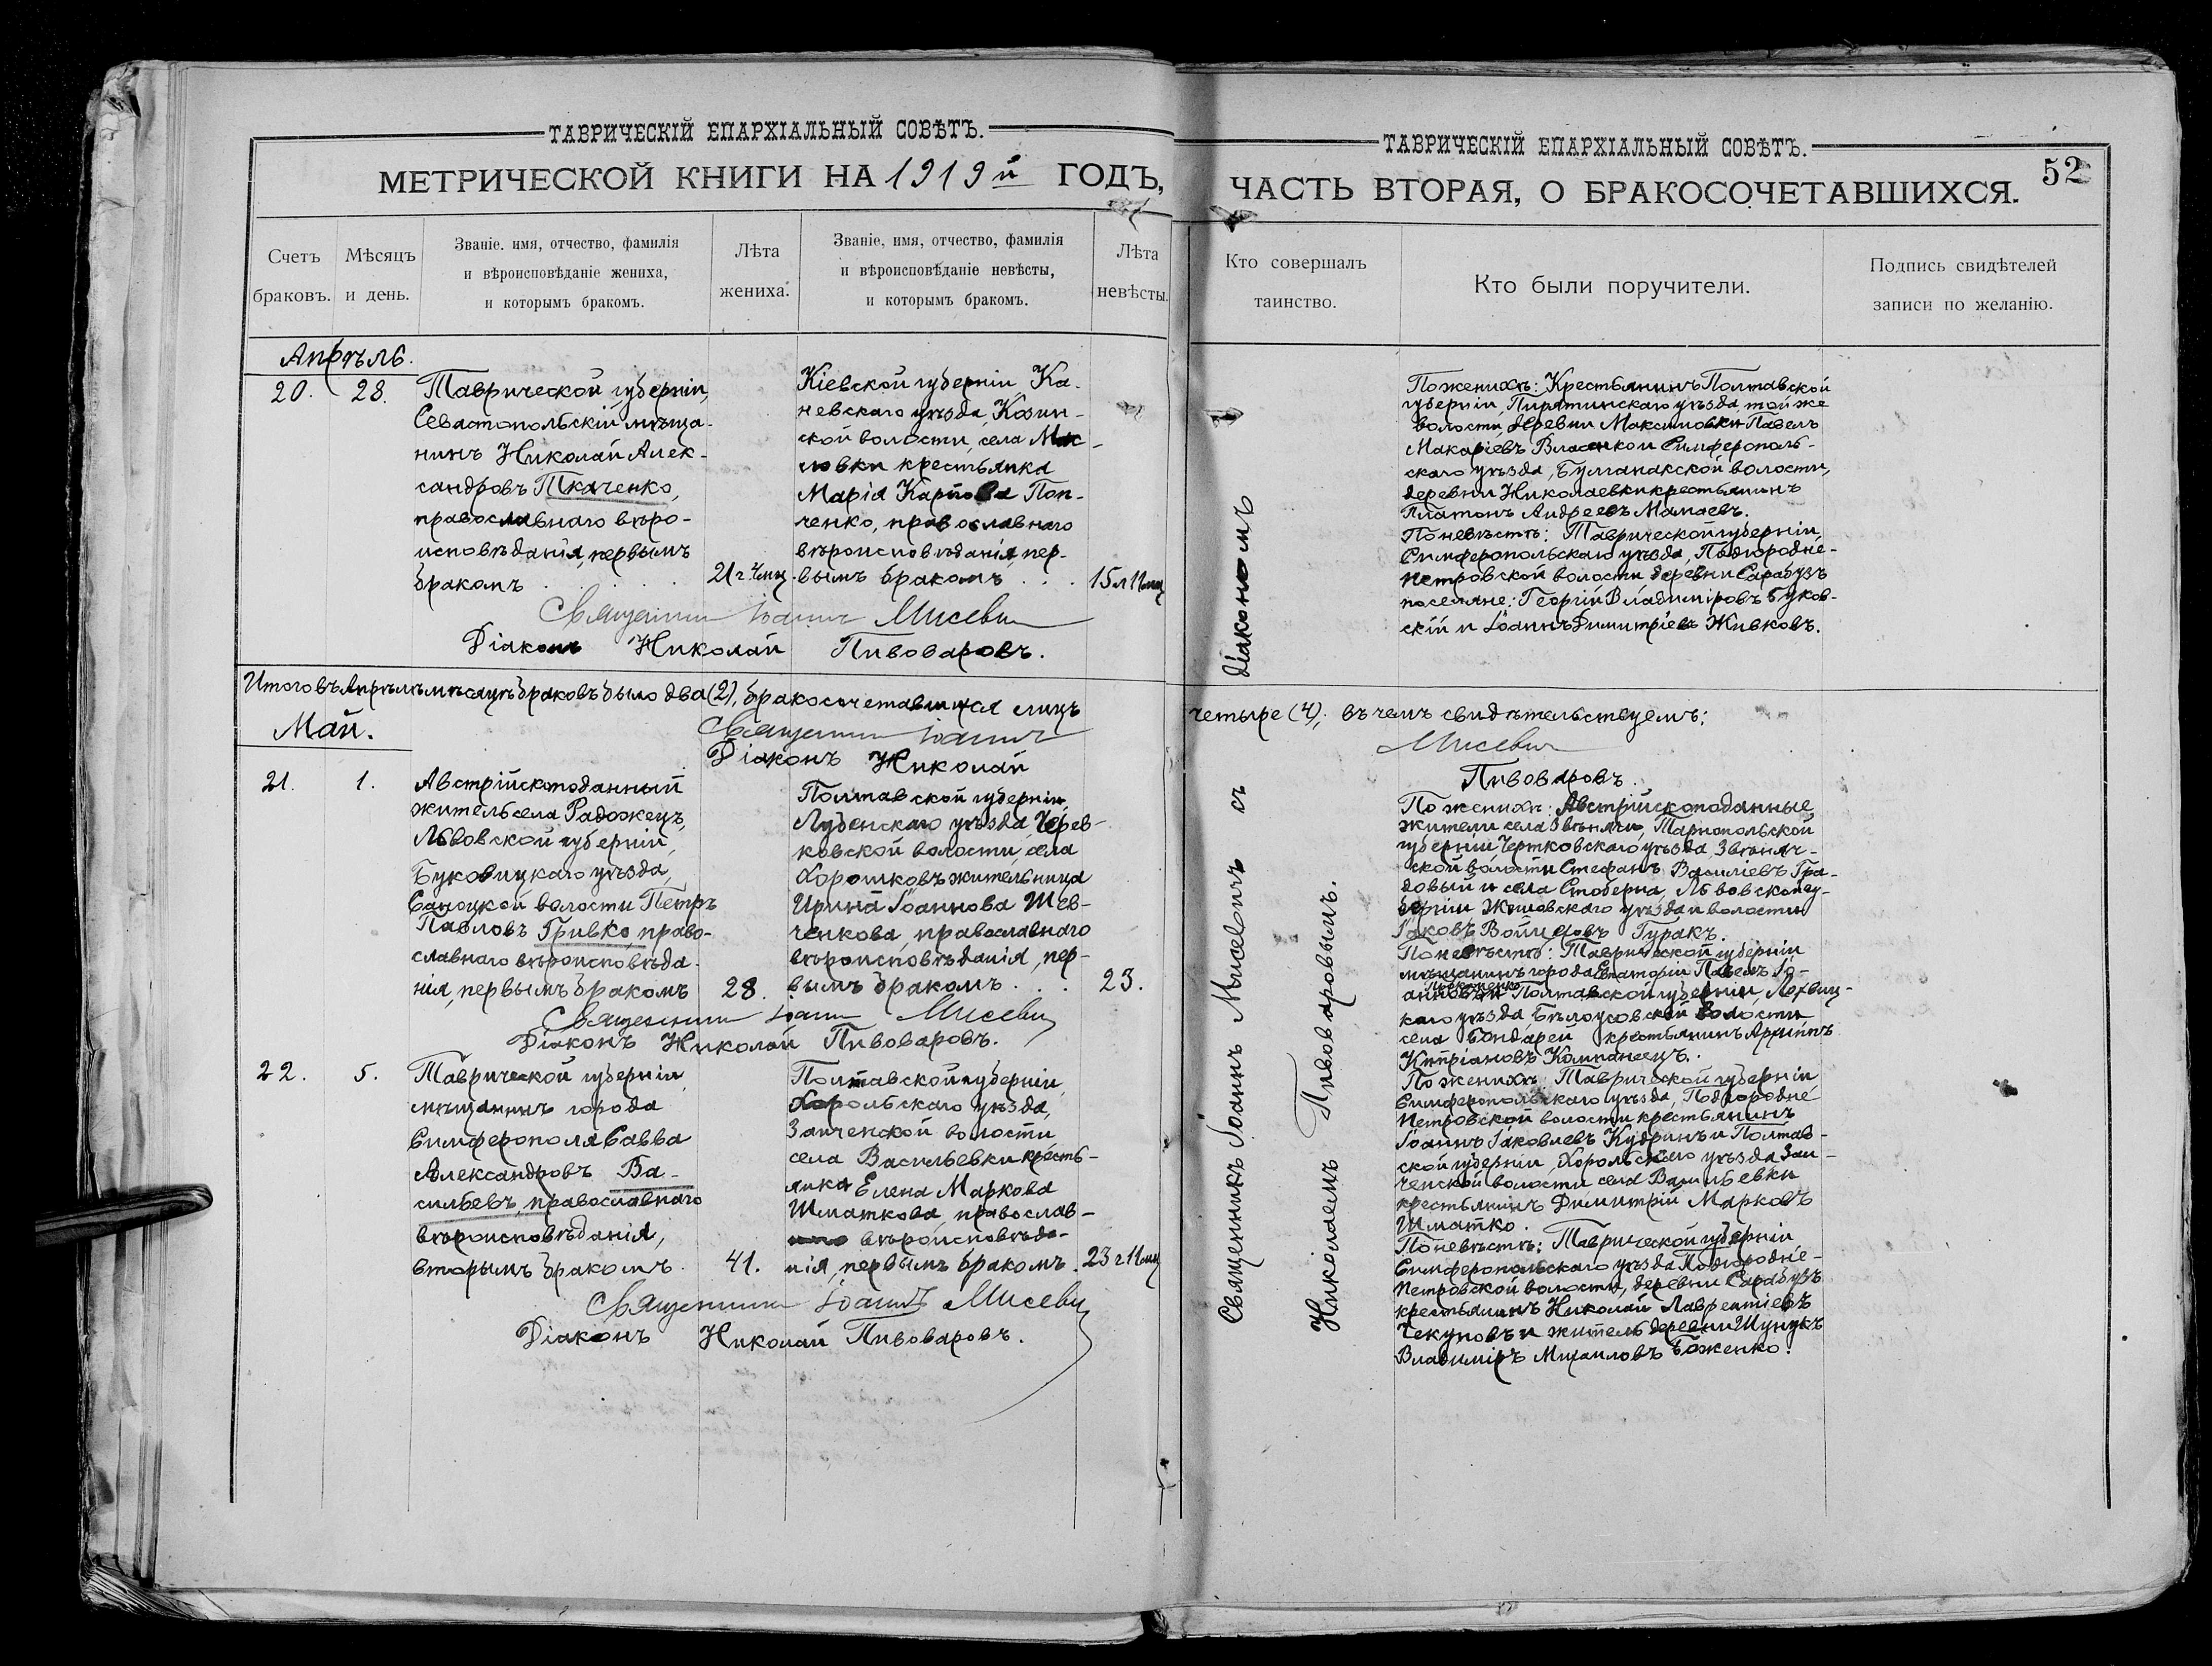 ТАВРИЧЕСКІЙ ЕПАРХІАЛЬНЫЙ СОВѢТЪ.
МЕТРИЧЕСКОЙ КНИГИ НА 1919й ГОДЪ,
Счетъ браковъ.
Мѣсяцъ и день.
Званіе, имя, отчество, фамилія
и вѣроисповѣданіе жениха,
и которымъ бракомъ.
Лѣта жениха.
Званіе, имя, отчество, фамилія
и вѣроисповѣданіе невѣсты,
и которымъ бракомъ.
Лѣта невѣсты.
Апрѣль.
20. 28.
Таврической губерніи,
Севастопольскій мѣща-
нинъ Николай Алек-
сандровъ Ткаченко,
православнаго вѣро-
исповѣданія, первымъ
бракомъ
21 г. 4 мц.
Кіевской губерніи, Ка-
невскаго уѣзда, Козин-
ской волости, села Мас-
ловки крестьянка
Марія Карпова Поп-
ченко, православнаго
вѣроисповѣданія, пер-
вымъ бракомъ
15 л 11 мц
Священникъ Іоаннъ Мисевич
Діаконъ Николай Пивоваровъ.
Итого въ Апрѣлѣ мѣсяцѣ браковъ было два (2), бракосочетавшихся лицъ
Священникъ Іоаннъ
Діаконъ Николай
Май.
21. 1.
Австрійскоподанный
житель села Радожецъ,
Львовской губерніи,
Буковицкаго уѣзда,
Саноцкой волости Петръ
Павловъ Гривко, право-
славнаго вѣроисповѣда-
нія, первымъ бракомъ
28.
Полтавской губерніи,
Лубенскаго уѣзда,
ковской волости, села
Хорошковъ жительница
Ирина Іоаннова Шев-
ченкова, православнаго
вѣроисповѣданія, пер-
вымъ бракомъ
23.
Священникъ Іоаннъ Мисевич
Діаконъ Николай Пивоваровъ.
22. 5.
Таврической губерніи
мѣщанинъ города
Симферополя Савва
Александровъ Ва-
сильевъ, православнаго
вѣроисповѣданія,
вторымъ бракомъ
41.
Полтавской губерніи,
Хорольскаго уѣзда,
Заиченской волости
села Васильевки кресть-
янка Елена Маркова
Шматкова, православ-
вѣроисповѣда-
нія, первымъ бракомъ.
23 г 11 мц
Священникъ Іоаннъ Мисевич
Діаконъ Николай Пивоваровъ.
ТАВРИЧЕСКІЙ ЕПАРХІАЛЬНЫЙ СОВѢТЪ.
52
ЧАСТЬ ВТОРАЯ, О БРАКОСОЧЕТАВШИХСЯ.
Кто совершалъ таинство.
Кто были поручители.
Подпись свидѣтелей
записи по желанію.
Священникъ Іоаннъ Мисевичъ съ діакономъ
Николаемъ Пивоваровымъ.
По женихѣ: Крестьянинъ Полтавской
губерніи, Пирятинскаго уѣзда, той же
волости, деревни Максимовки Павелъ
Макаріевъ Власенко и Симферополь-
скаго уѣзда, Булганакской волости,
деревни Николаевки крестьянинъ
Платонъ Андреевъ Мамаевъ.
По невѣстѣ: Таврической губерніи,
Симферопольскаго уѣзда, Подгородне-
Петровской волости деревни Сарабузъ
поселяне: Георгій Владиміровъ Буков-
скій и Іоаннъ Димитріевъ Живковъ.
четыре (4), въ чемъ свидѣтельствуемъ:
Мисевич
Пивоваровъ.
По женихѣ: Австрійскоподанные,
жители села Звѣняча, Тарнопольской
губерніи, Чертковскаго уѣзда, Звѣняч-
ской волости Стефанъ Василіевъ Гра-
довый и села Стоберна, Львовской гу-
берніи, уѣзда и волости
Іаковъ Гуракъ.
По невѣстѣ: Таврической губерніи
мѣщанинъ города Евпаторіи Павелъ Іо-
анновъ и Полтавской губерніи, Лохвиц-
каго уѣзда, Бѣлоусовской волости
села Бондарей крестьянинъ
Кипріановъ Компанеецъ.
По женихѣ: Таврической губерніи
Симферопольскаго уѣзда, Подгородне
Петровской волости крестьянинъ
Іоаннъ Іаковлевъ Кудринъ и Полтав-
ской губерніи, Хорольскаго уѣзда Заи-
ченской волости села Васильевки
крестьянинъ Димитрій Марковъ
Шматко.
По невѣстѣ: Таврической губерніи
Симферопольскаго уѣзда Подгородне-
Петровской волости, деревни Сарабузъ
крестьянинъ Николай Лаврентіевъ
Чекуновъ и житель деревни Шунукъ
Владиміръ Михаиловъ Боженко.